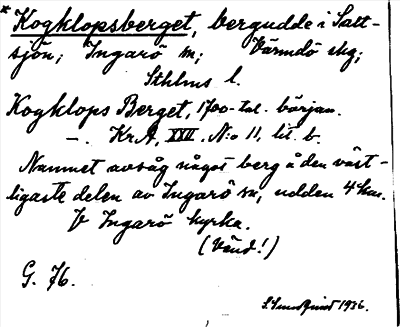 * Kogklopsberget, bergudde i Salt-
sjön; Ingarö sn; Värmdö skg;
Sthlms l.
Kogklops Berget, 1700-tal. början.
—. KrA, XXII. N:o 11, lit. b.
Namnet avsåg något berg å den väst-
ligaste delen av Ingarö sn, udden 4 km.
V Ingarö kyrka.
(Vänd!)
G. 76.
1936.